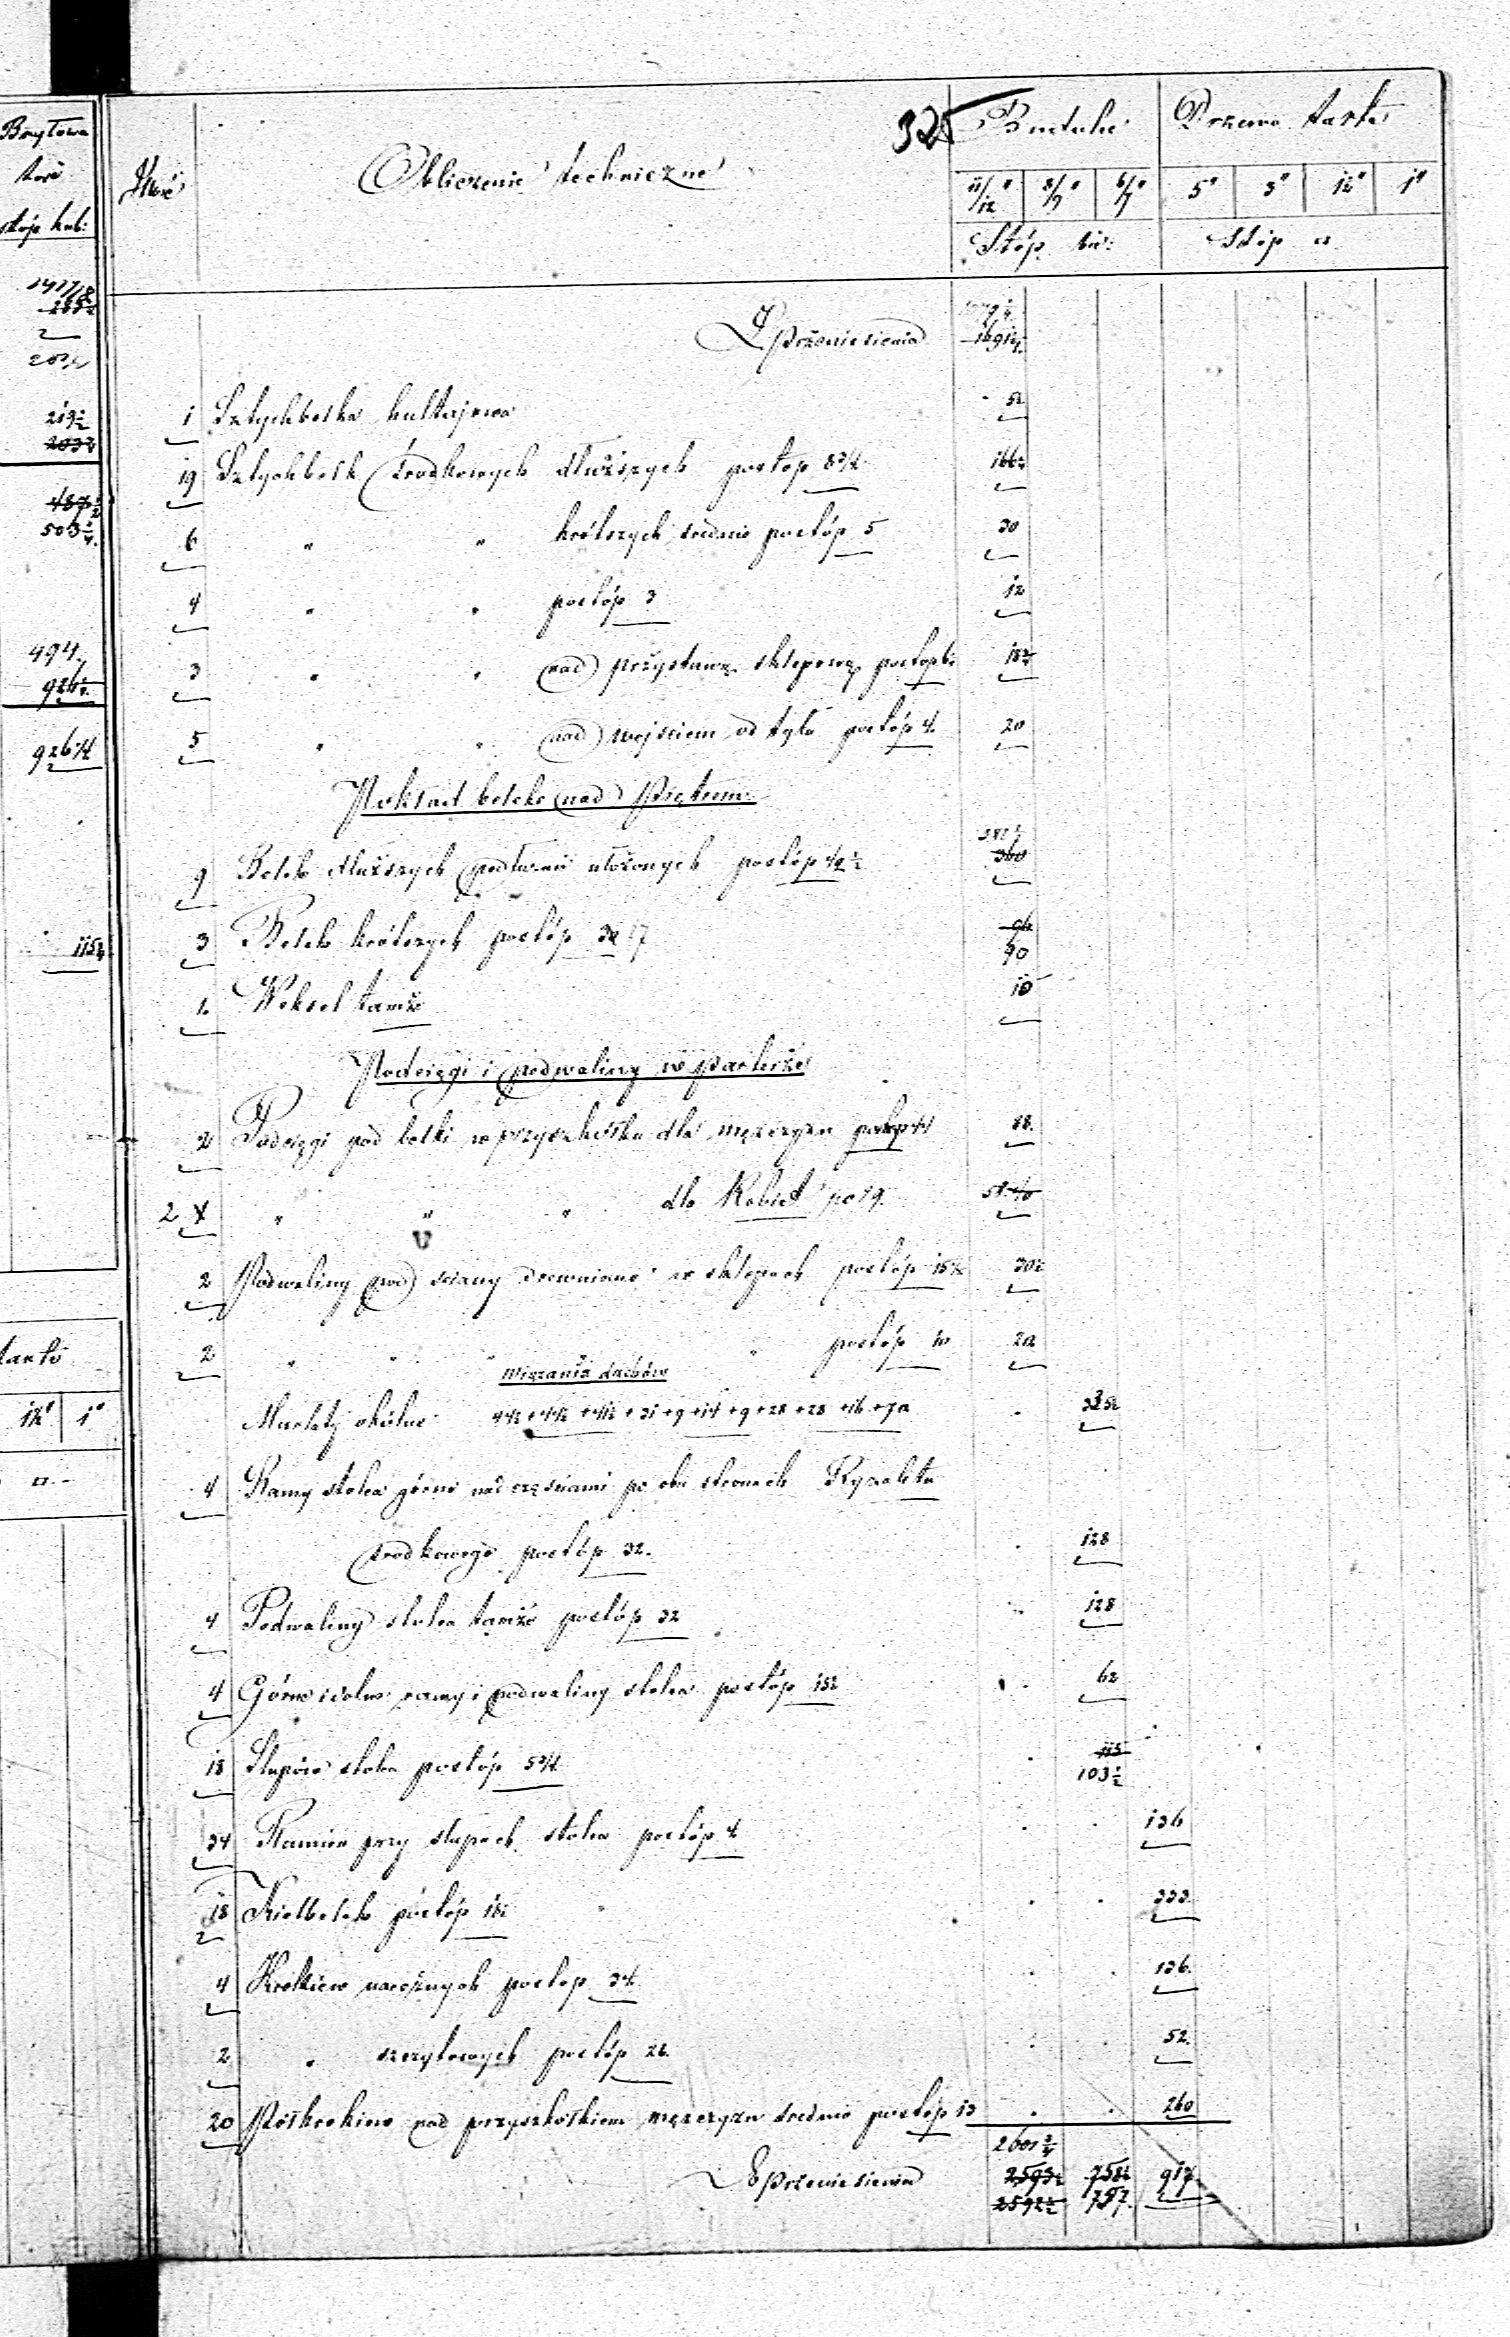 Brytowa
tość
stóp kub:
213½
203¾
503¼
494.
926¼
926 1/4
115½
tarte
1½" 1"
325
Ilość Obliczenie techniczne Budulec Drzewo tarte
11/12" 8/9" 6/7" 5" 3" 1½" 1"
Stóp bież: Stóp □
Z przeniesienia 1691¼
1 Sztychbelka kultajowa 5½
19 Sztychbelk środkowych dłuższych po stóp 8¾ 166¼
6 " " krótszych średnio po stóp 5 30
4 " " po stóp 3 12
3 " " nad przystawą sklepową po stóp 6¼ 18¾
5 " " nad wejściem od tyłu po stóp 4. 20
Pokład belek nad Piętrem
9 Belek dłuższych podłużnie ułożonych po stóp 42½ 382½ 360
3 Belek krótszych po stóp 32 96 90
1 Weksel tamże 10
Podciągi i podwaliny w parterze
2 Podciągi pod belki w przyszkółku dla mężczyzn po stóp 44 88.
2 " " " dla Kobiet po 29. 58
2 Podwaliny pod ściany drewniane w sklepach po stóp 15¼ 30½
2 " " " " po stóp 10 20
Wiązania dachów
Murłaty okólne 44½ + 44½ + 41½ + 31 + 9 + 14 + 9 + 28 + 28 + 16 + 70 335½
4 Ramy stolca górne nad częściami po obu stronach Ryzalitu
środkowego po stóp 32. 128
4 Podwaliny stolca tamże po stóp 32 128
4 Górne i dolne ramy i podwaliny stolca po stóp 15½ 62
18 Słupów stolca po stóp 5¾ 115 103½
34 Ramion przy słupach stolca po stóp 4 136
18 Kielbelek po stóp 18½ 333.
4 Krokiew narożnych po stóp 34 136.
2 " szczytowych po stóp 26. 52.
20 Półkrokiew nad przyszkółkiem mężczyzn średnio po stóp 13 260
2601¾
Do przeniesienia 2593½ 758½ 917
2592½ 757.